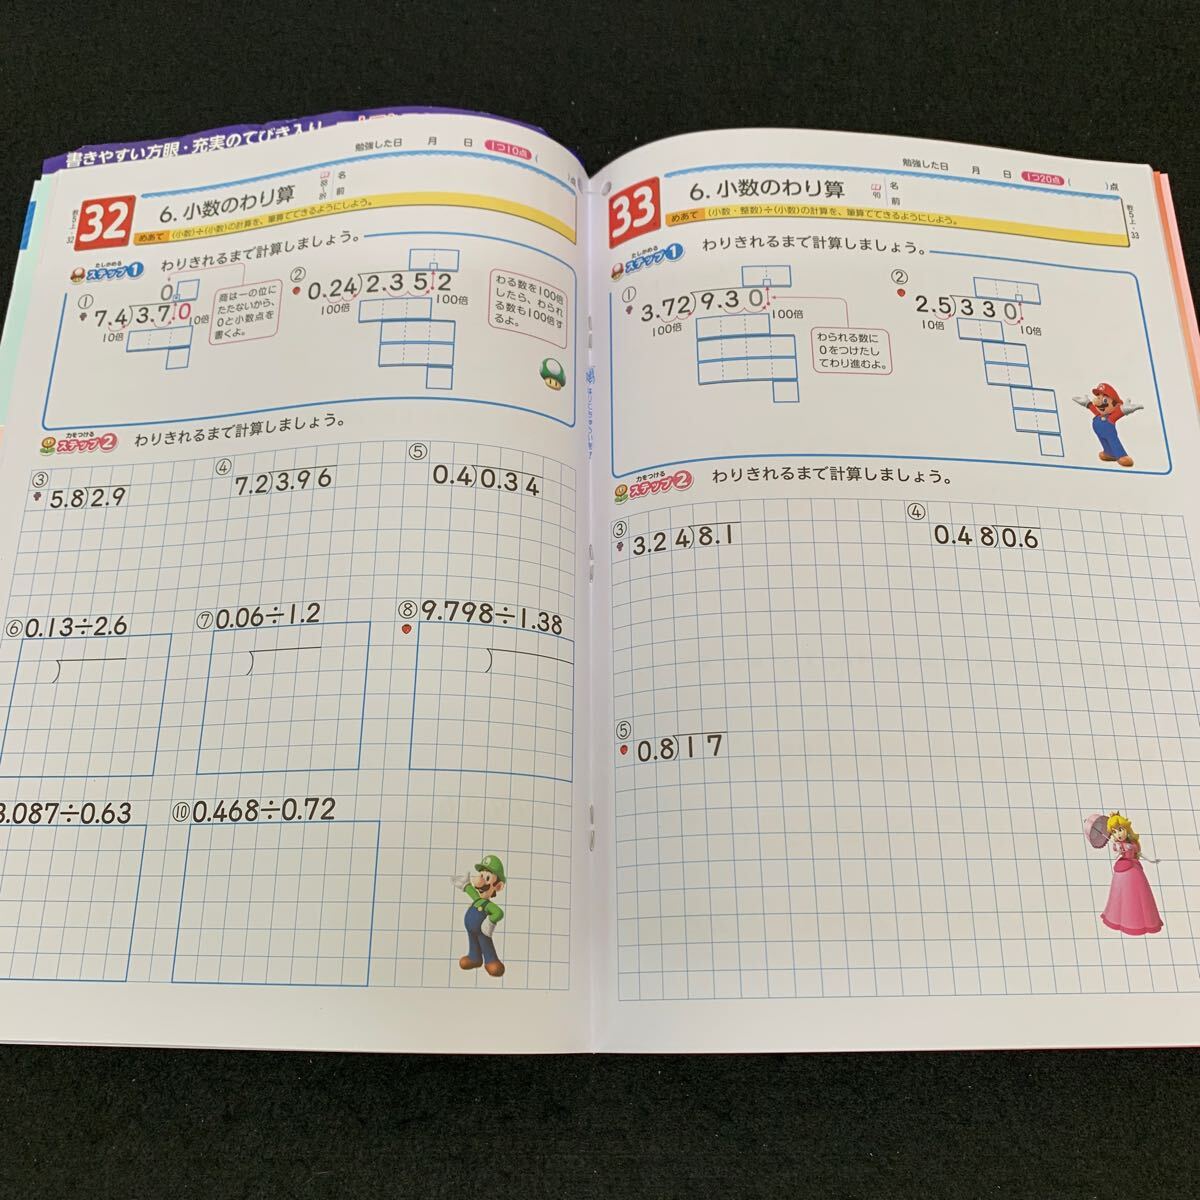 書きやすい方眼・充実のてびき入り
勉強した日 月 日 1つ10点 ( )点
教5上・32
32
6. 小数のわり算
88〜89
名前
めあて (小数)÷(小数)の計算を、筆算でできるようにしよう。
たしかめる
ステップ1 わりきれるまで計算しましょう。
①
0
7.4)3.7.0
10倍 10倍
商は一の位に
たたないから、
0と小数点を
書くよ。
②
0.24)2.352
100倍 100倍
わる数を100倍
したら、わられ
る数も100倍す
るよ。
力をつける
ステップ2 わりきれるまで計算しましょう。
③ 5.8)2.9
④ 7.2)3.96
⑤ 0.4)0.34
⑥ 0.13÷2.6
⑦ 0.06÷1.2
⑧ 9.798÷1.38
.087÷0.63
⑩ 0.468÷0.72
勉強した日 月 日 1つ20点 ( )点
33
6. 小数のわり算
90
名前
教5上・33
めあて (小数・整数)÷(小数)の計算を、筆算でできるようにしよう。
たしかめる
ステップ1 わりきれるまで計算しましょう。
①
3.72)9.30
100倍 100倍
わられる数に
0をつけたし
てわり進むよ。
②
2.5)330
10倍 10倍
力をつける
ステップ2 わりきれるまで計算しましょう。
③ 3.24)8.1
④ 0.48)0.6
⑤ 0.8)17